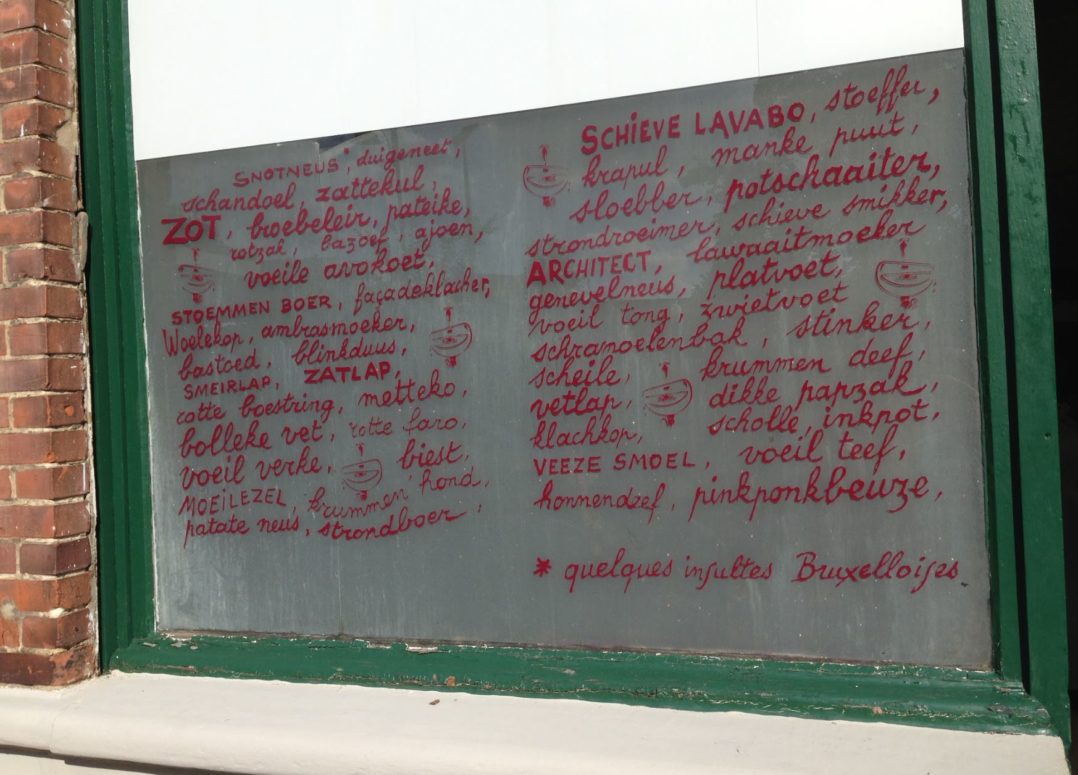 SNOTNEUS, duigeneet,
schandoel, zattekul,
ZOT, broebeleir, pateike,
rotzak, bazoef, ajoen,
voeile avokoet,
STOEMMEN BOER, façadeklacher,
Woelekop, ambrasmoeker,
bastoed, blinkduus,
SMEIRLAP, ZATLAP,
rotte boestring, metteko,
bolleke vet, rotte faro,
voeil verke, biest,
MOEILEZEL, krummen hond,
patate neus, strondboer,
SCHIEVE LAVABO, stoeffer,
krapul, manke puut,
sloebber, potschaaiter,
strondroeimer, schieve smikker,
ARCHITECT, lawaaitmoeker
genevelneus, platvoet,
voeil tong, zwietvoet
schramoelenbak, stinker,
scheile, krummen deef,
vetlap, dikke papzak,
klachkop, scholle, inkpot,
VEEZE SMOEL, voeil teef,
honnendeef, pinkponkbeuze,
* quelques insultes Bruxelloises